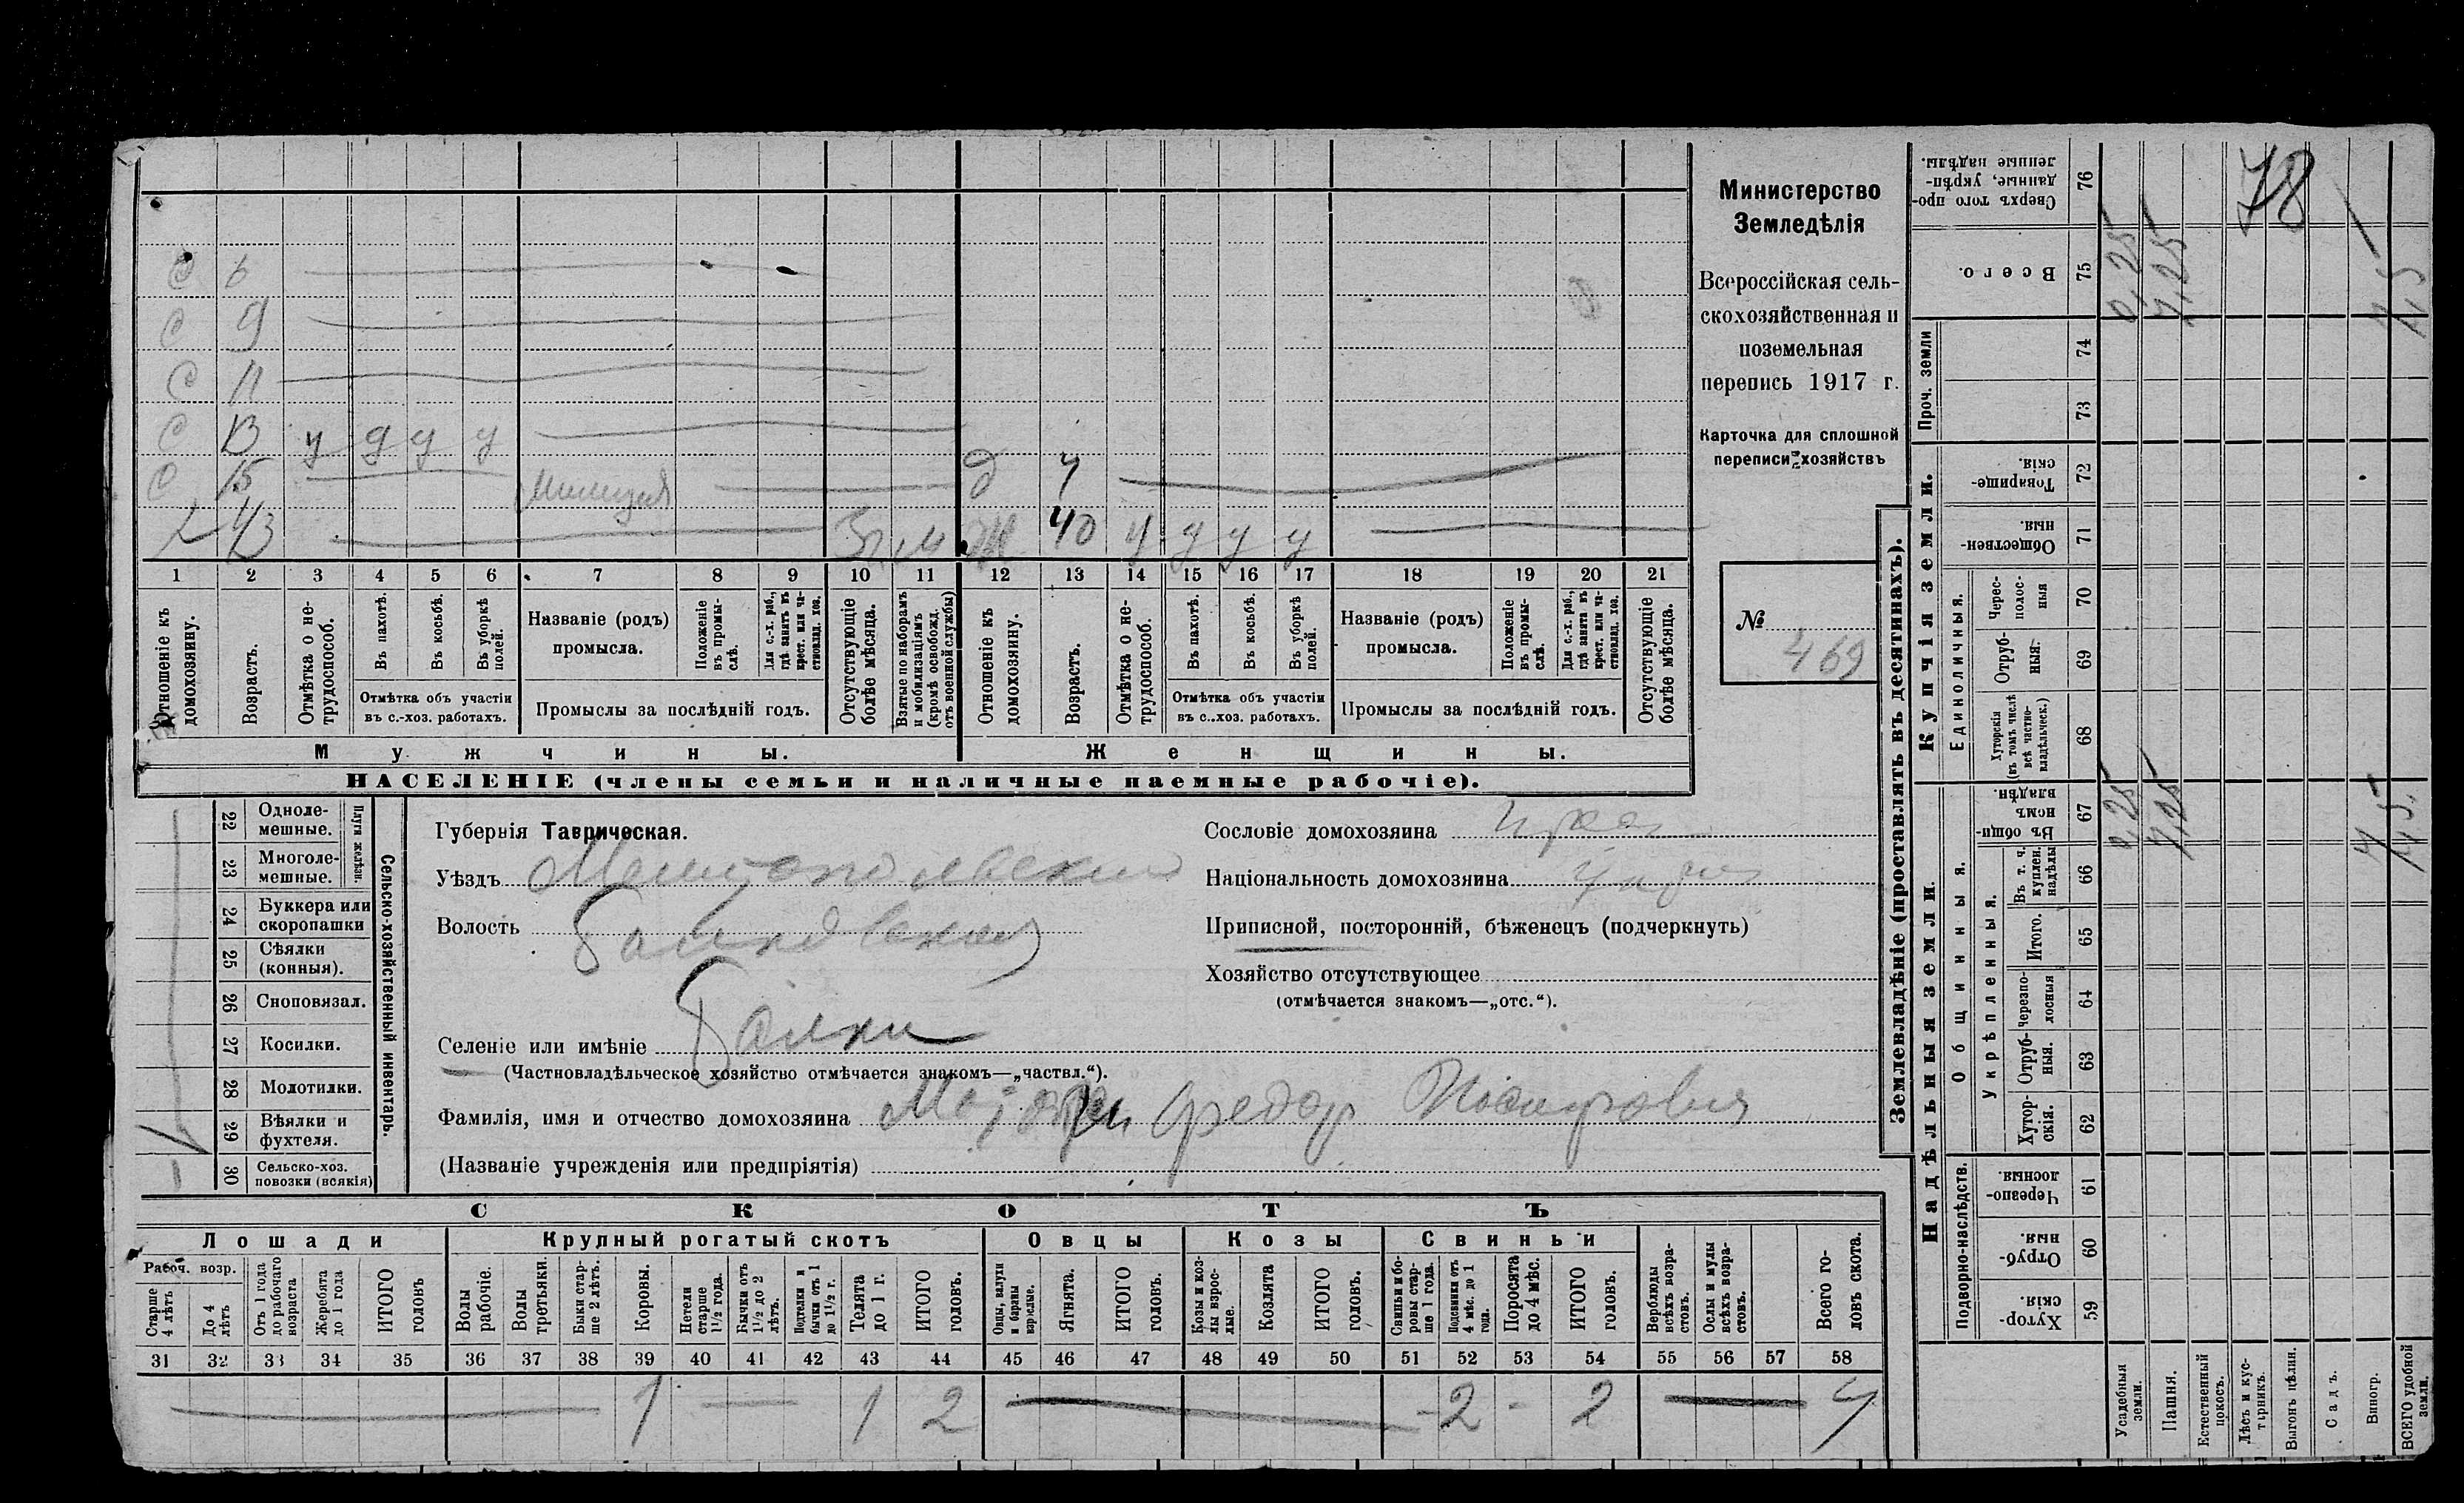 78
Министерство
Земледѣлія
Всероссійская сель-
скохозяйственная и
поземельная
перепись 1917 г.
Карточка для сплошной
переписи хозяйствъ
№
469
С 6
С 9
С 11
С 13 у д у у
С 15
д 4
Х 43 Ж 40 у д у у
1 2 3 4 5 6 7 8 9 10 11 12 13 14 15 16 17 18 19 20 21
Отношеніе къ домохозяину.
Возрастъ.
Отмѣтка о не-трудоспособ.
Въ пахотѣ.
Въ косьбѣ.
Въ уборкѣ полей.
Отмѣтка объ участіи
въ с.-хоз. работахъ.
Названіе (родъ)
промысла.
Положеніе въ промы-слѣ.
Для с.-х. раб., гдѣ занятъ въ крест. или ча-стновлад. хоз.
Промыслы за послѣдній годъ.
Отсутствующіе болѣе мѣсяца.
Взятые по наборамъ и мобилизаціямъ (кромѣ освобожд. отъ военной службы)
Отношеніе къ домохозяину.
Возрастъ.
Отмѣтка о не-трудоспособ.
Въ пахотѣ.
Въ косьбѣ.
Въ уборкѣ полей.
Отмѣтка объ участіи
въ с.-хоз. работахъ.
Названіе (родъ)
промысла.
Положеніе въ промы-слѣ.
Для с.-х. раб., гдѣ занята въ крест. или ча-стновлад. хоз.
Промыслы за послѣдній годъ.
Отсутствующіе болѣе мѣсяца.
Мужчины.
Женщины.
НАСЕЛЕНІЕ (члены семьи и наличные наемные рабочіе).
Сельско-хозяйственный инвентарь.
Плуги желѣзн.
22 Одноле-мешные.
23 Многоле-мешные.
24 Буккера или скоропашки
25 Сѣялки (конныя).
26 Сноповязал.
27 Косилки.
28 Молотилки.
29 Вѣялки и фухтеля.
30 Сельско-хоз. повозки (всякія)
Губернія Таврическая.
Уѣздъ Мелитопольский
Волость Балковская
Селеніе или имѣніе Балки
(Частновладѣльческое хозяйство отмѣчается знакомъ—„частвл.“).
Фамилія, имя и отчество домохозяина Федор
(Названіе учрежденія или предпріятія)
Сословіе домохозяина
Національность домохозяина
Приписной, посторонній, бѣженецъ (подчеркнуть)
Хозяйство отсутствующее
(отмѣчается знакомъ—„отс.“).
СКОТЪ
Лошади
Крупный рогатый скотъ
Овцы
Козы
Свиньи
Рабоч. возр.
Старше 4 лѣтъ
До 4 лѣтъ
Отъ 1 года до рабочаго возраста
Жеребята до 1 года
ИТОГО головъ
Волы рабочіе.
Волы третьяки.
Быки стар-ше 2 лѣтъ.
Коровы.
Нетели старше 1½ года.
Бычки отъ 1½ до 2 лѣтъ.
Подтелки и бычки отъ 1 до 1½ г.
Телята до 1 г.
ИТОГО головъ.
Овцы, валухи и бараны взрослые.
Ягнята.
ИТОГО головъ.
Козы и коз-лы взрос-лые.
Козлята
ИТОГО головъ.
Свиньи и бо-ровы стар-ше 1 года.
Подсвинки отъ 4 мѣс. до 1 года.
Поросята до 4 мѣс.
ИТОГО головъ.
Верблюды всѣхъ возра-стовъ.
Ослы и мулы всѣхъ возра-стовъ.
Всего го-ловъ скота.
31 32 33 34 35 36 37 38 39 40 41 42 43 44 45 46 47 48 49 50 51 52 53 54 55 56 57 58
1 — 1 2 — 2 - 2 — 4
Землевладѣніе (проставлять въ десятинахъ).
Купчія земли.
Надѣльныя земли.
Сверхъ того про-данные, укрѣп-ленные надѣлы. 76
Всего. 75
Проч. земли
74
73
Товарище-скія. 72
Обществен-ныя. 71
Единоличныя.
Черес-полос-ныя 70
Отруб-ныя. 69
Хуторскія (въ томъ числѣ всѣ частно-владѣльческ.) 68
Общинныя.
Въ общи-номъ владѣн. 67
Укрѣпленныя.
Въ т. ч. куплен. надѣлы 66
Итого. 65
Черезпо-лосныя 64
Отруб-ныя. 63
Хутор-скія. 62
Подворно-наслѣдств.
Черезпо-лосныя 61
Отруб-ныя. 60
Хутор-скія. 59
Усадебныя земли.
Пашня.
Естественный покосъ.
Лѣсъ и кус-тарникъ.
Выгонъ цѣлин.
Садъ.
Виногр.
ВСЕГО удобной земли.
0,25
7,25
7,5
0,25
7,25
7,5